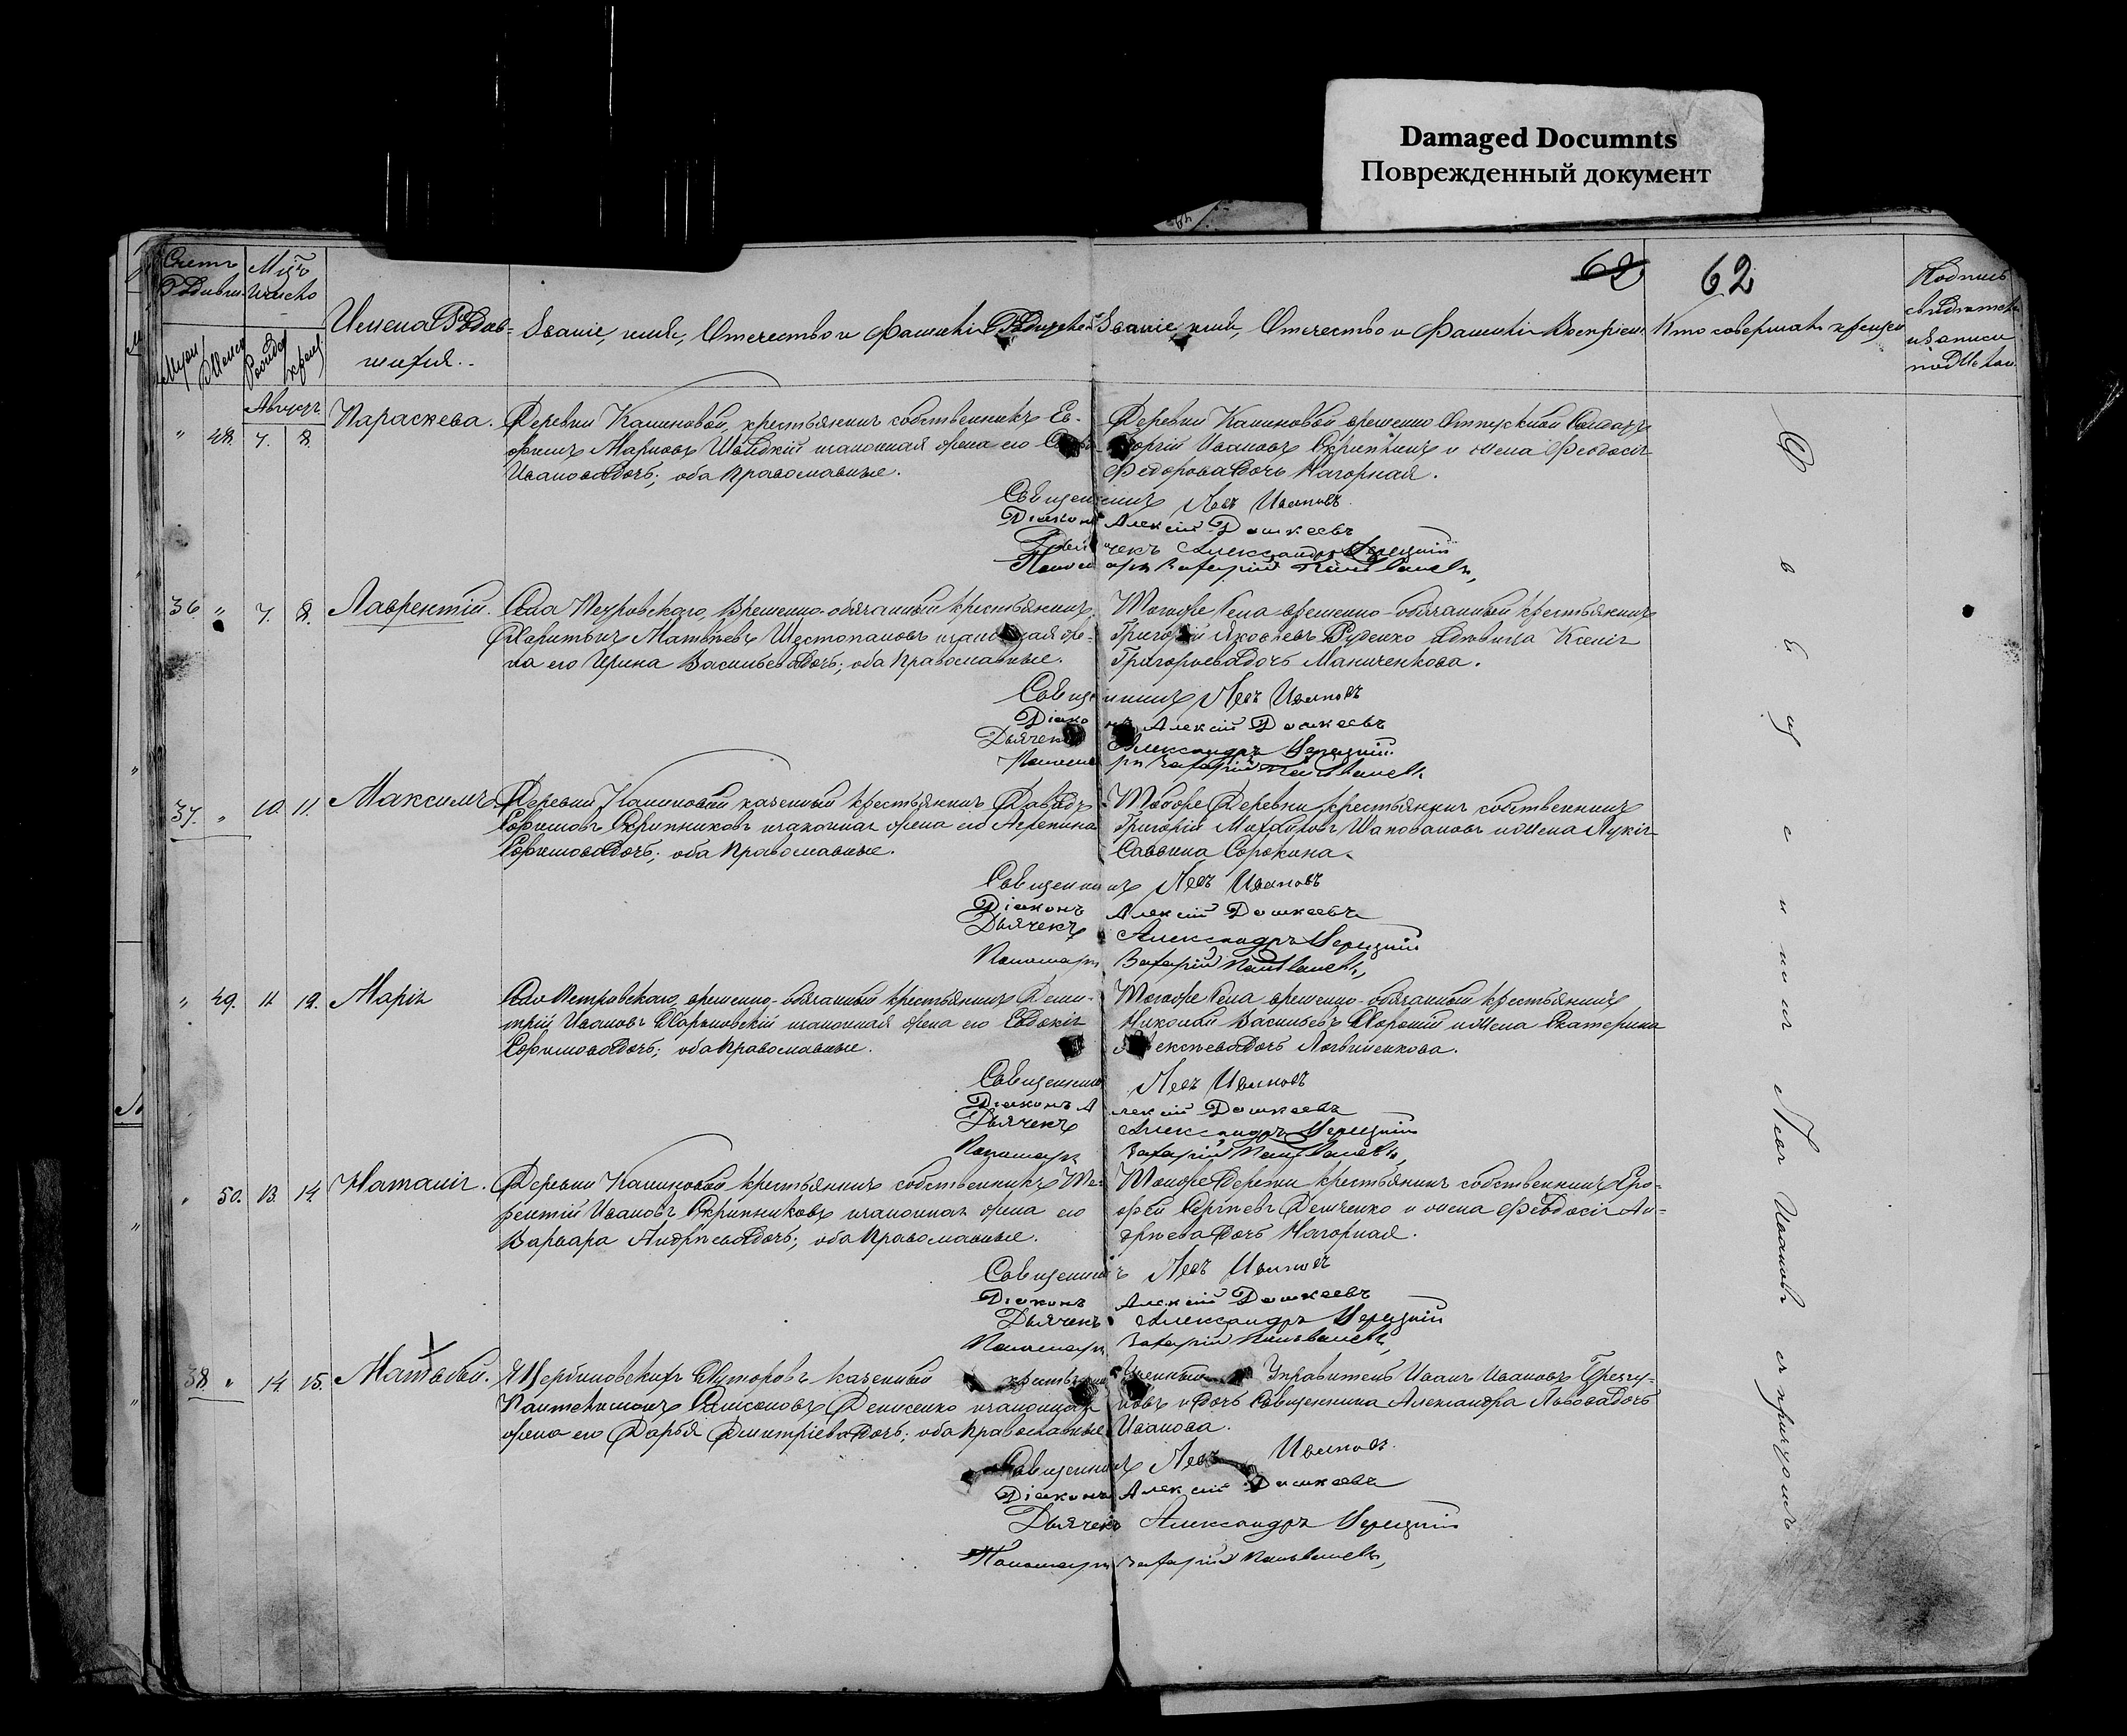 Damaged Documnts
Поврежденный документ
62
62
Счетъ
Родивш.
Мць
и число
Имена Родив-
шихся.
Званіе, имя, Отечество и Фамилія Родителей
Званіе, имя, Отечество и Фамилія Воспріем.
Кто совершалъ крещен
Подпись
свидѣтел.
записи
Муж.
Женс.
Рожд.
Крещ.
Августъ
" 48. 7. 8. Параскева.
Деревни Калиновой, крестьянинъ собственникъ Ев-
фимъ Марковъ Швидкій и законная жена его
Иванова Дочь; оба Православные.
Деревни Калиновой временно Отпускной Солдатъ
Георгій Ивановъ Скрипкинъ и жена Феодосія
Федорова Дочь Нагорная.
Священникъ Левъ Ивановъ
Діаконъ Алексій Дашкеевъ
Дьячекъ Александръ
Пономарь Захарій
36. " 7. 8. Лаврентій.
Села Петровскаго, Временно-обязанный крестьянинъ
Харитонъ Матвѣевъ Шестопаловъ и законная же-
на его Ирина Васильева Дочь; оба Православные.
Тогоже Села временно-обязанный крестьянинъ
Григорій Яковлевъ Руденко и дѣвица Ксенія
Григорьева Дочь Маниченкова.
Священникъ Левъ Ивановъ
Діаконъ Алексій Дашкеевъ
Дьячекъ Александръ
Пономарь Захарій
37. " 10. 11. Максимъ
Деревни Калиновой казенный крестьянинъ Давидъ
Ефимовъ Скрипниковъ и законная жена его
Ефимова Дочь; оба Православные.
Тойже Деревни крестьянинъ собственникъ
Григорій Михайловъ Шаповаловъ и жена Лукія
Саввина Сорокина.
Священникъ Левъ Ивановъ
Діаконъ Алексій Дашкеевъ
Дьячекъ Александръ
Пономарь Захарій
" 49. 11. 12. Марія
Села Петровскаго, временно-обязанный крестьянинъ Дими-
трій Ивановъ и законная жена его Евдокія
Ефимова Дочь; оба Православные.
Тогоже Села временно-обязанный крестьянинъ
Николай Васильевъ и жена Екатерина
Алексѣева Дочь Литвиненкова.
Священникъ Левъ Ивановъ
Діаконъ Алексій Дашкеевъ
Дьячекъ Александръ
Пономарь Захарій
" 50. 13. 14. Наталія.
Деревни Калиновой крестьянинъ собственникъ Те-
рентій Ивановъ Скрипниковъ и законная жена его
Варвара Андрѣева Дочь; оба Православные.
Тойже Деревни крестьянинъ собственникъ Еро-
фей Сергѣевъ Демченко и жена Феодосія Ан-
дрѣева Дочь Нагорная.
Священникъ Левъ Ивановъ
Діаконъ Алексій Дашкеевъ
Дьячекъ Александръ
Пономарь Захарій
38. " 14. 15. Матѳей.
Щербиновскихъ Хуторовъ казенный крестьянинъ
Пантелимонъ Самсоновъ Денисенко и законная
жена его Дарья Димитріева Дочь; оба Православные
Управитель Иванъ Ивановъ
и Дочь Священника Александра Львова Дочь
Иванова.
Священникъ Левъ Ивановъ
Діаконъ Алексій Дашкеевъ
Дьячекъ Александръ
Пономарь Захарій
Священникъ Левъ Ивановъ съ причтомъ